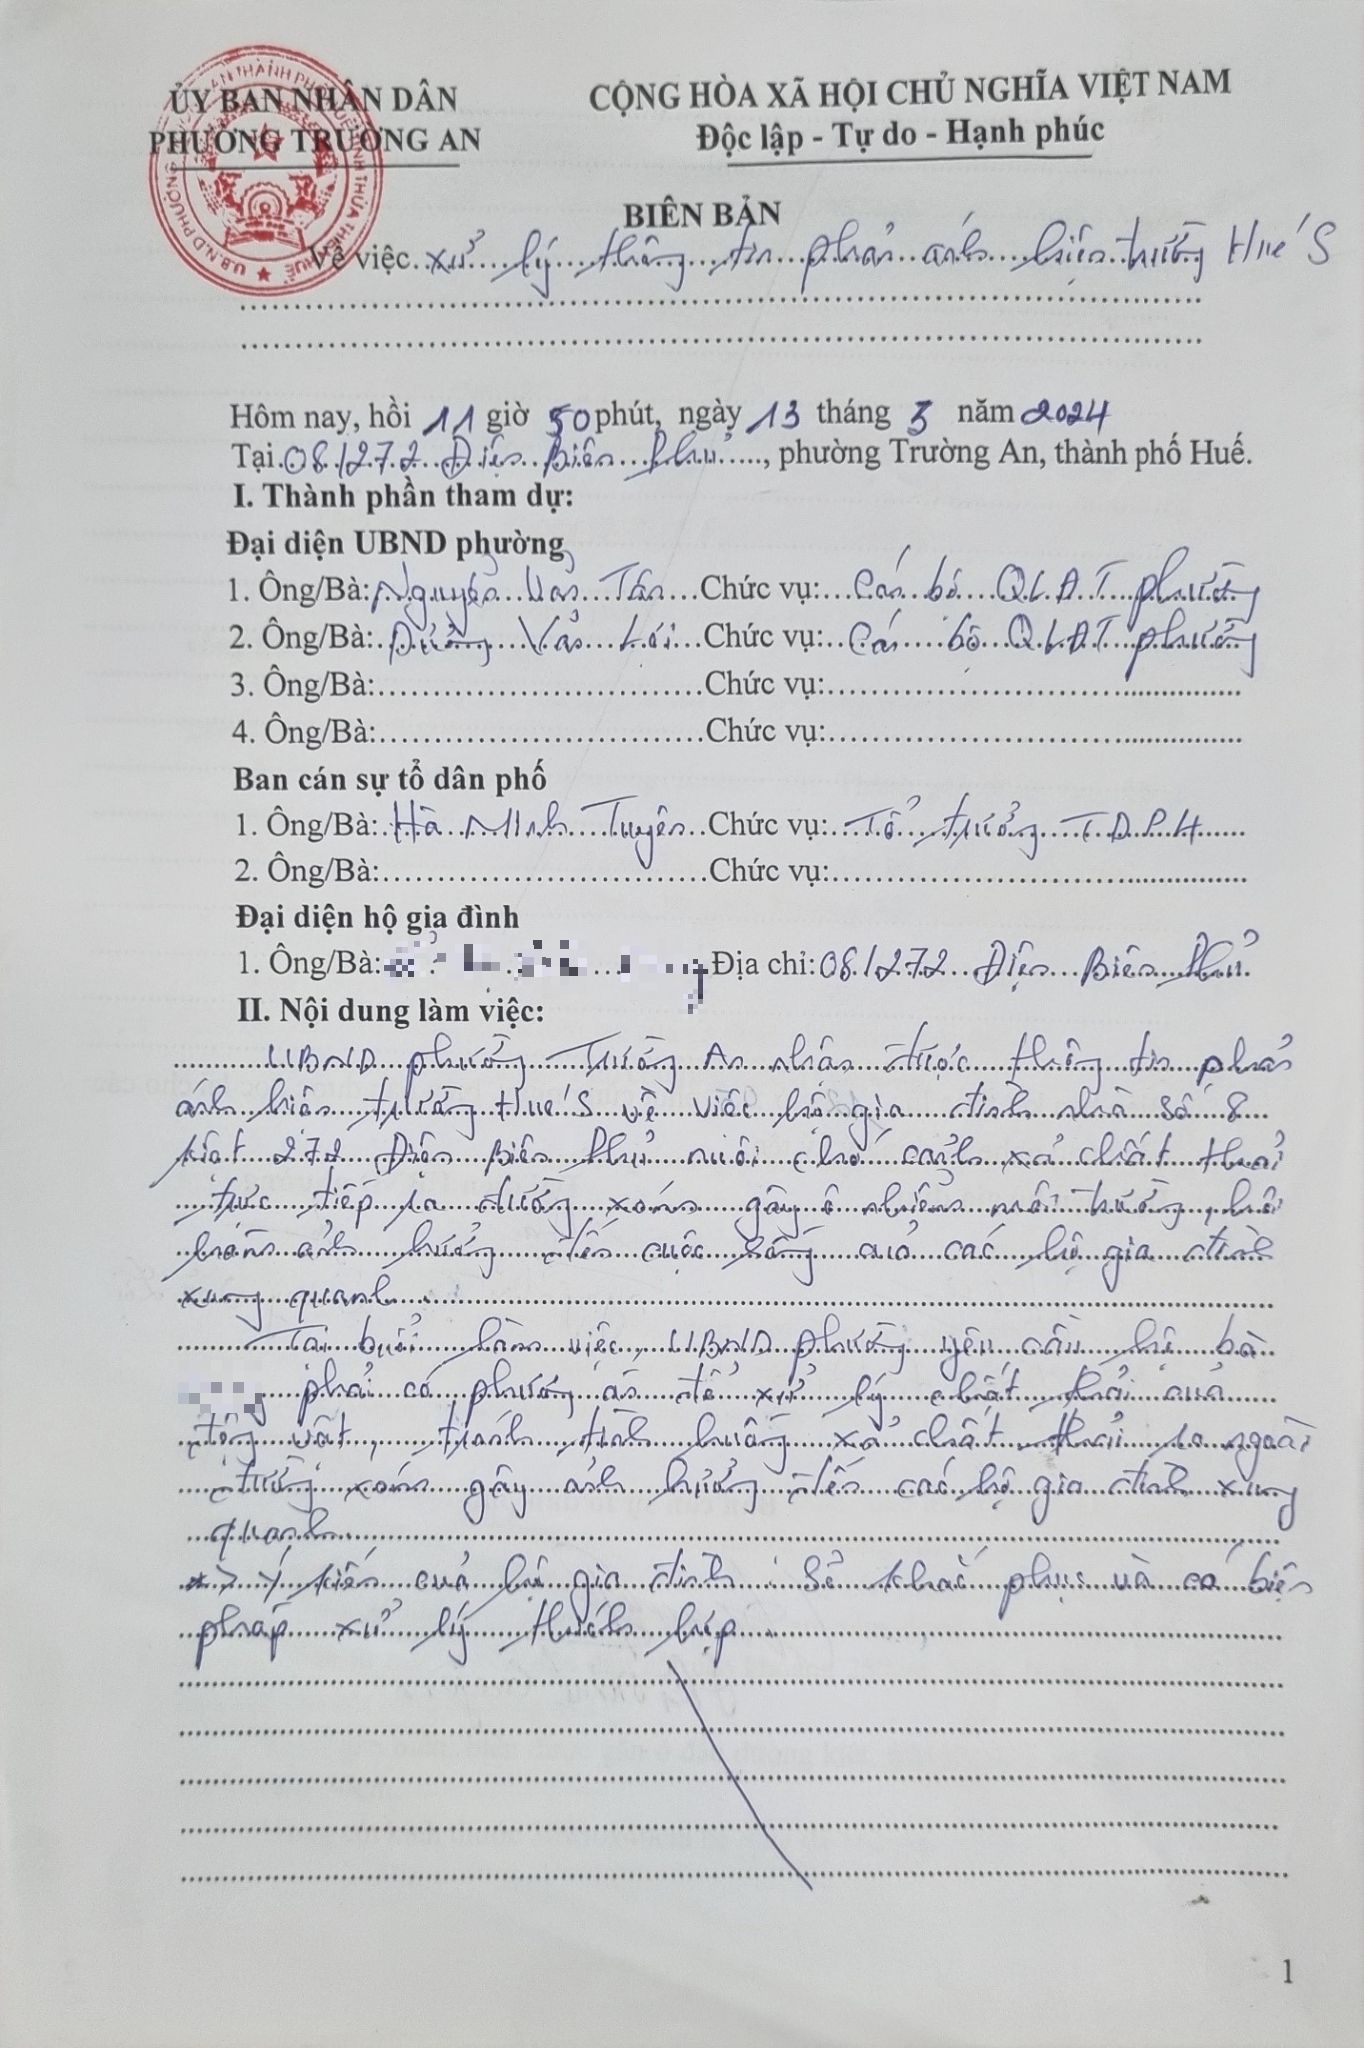 ỦY BAN NHÂN DÂN
PHƯỜNG TRƯỜNG AN
CỘNG HÒA XÃ HỘI CHỦ NGHĨA VIỆT NAM
Độc lập - Tự do - Hạnh phúc
BIÊN BẢN
Về việc xử lý thông tin phản ánh hiện trường Huế S
Hôm nay, hồi 11 giờ 50 phút, ngày 13 tháng 3 năm 2024
Tại 08/272 Điện Biên Phủ, phường Trường An, thành phố Huế.
I. Thành phần tham dự:
Đại diện UBND phường
1. Ông/Bà: Nguyễn Văn Tân Chức vụ: Cán bộ QLĐT phường
2. Ông/Bà: Dương Văn Lợi Chức vụ: Cán bộ QLĐT phường
3. Ông/Bà: Chức vụ:
4. Ông/Bà: Chức vụ:
Ban cán sự tổ dân phố
1. Ông/Bà: Hà Minh Tuyên Chức vụ: Tổ trưởng TDP 4
2. Ông/Bà: Chức vụ:
Đại diện hộ gia đình
1. Ông/Bà: Địa chỉ: 08/272 Điện Biên Phủ
II. Nội dung làm việc:
UBND phường Trường An nhận được thông tin phản
ánh hiện trường Huế S về việc hộ gia đình nhà số 8
kiệt 272 Điện Biên Phủ nuôi chó cảnh xả chất thải
trực tiếp ra đường xóm gây ô nhiễm môi trường, hôi
thối ảnh hưởng đến cuộc sống của các hộ gia đình
xung quanh.
Tại buổi làm việc, UBND phường yêu cầu hộ bà
phải có phương án để xử lý chất thải của
động vật, tránh tình huống xả chất thải ra ngoài
đường xóm gây ảnh hưởng đến các hộ gia đình xung
quanh.
* Ý kiến của hộ gia đình : Sẽ khắc phục và có biện
pháp xử lý thích hợp.
1